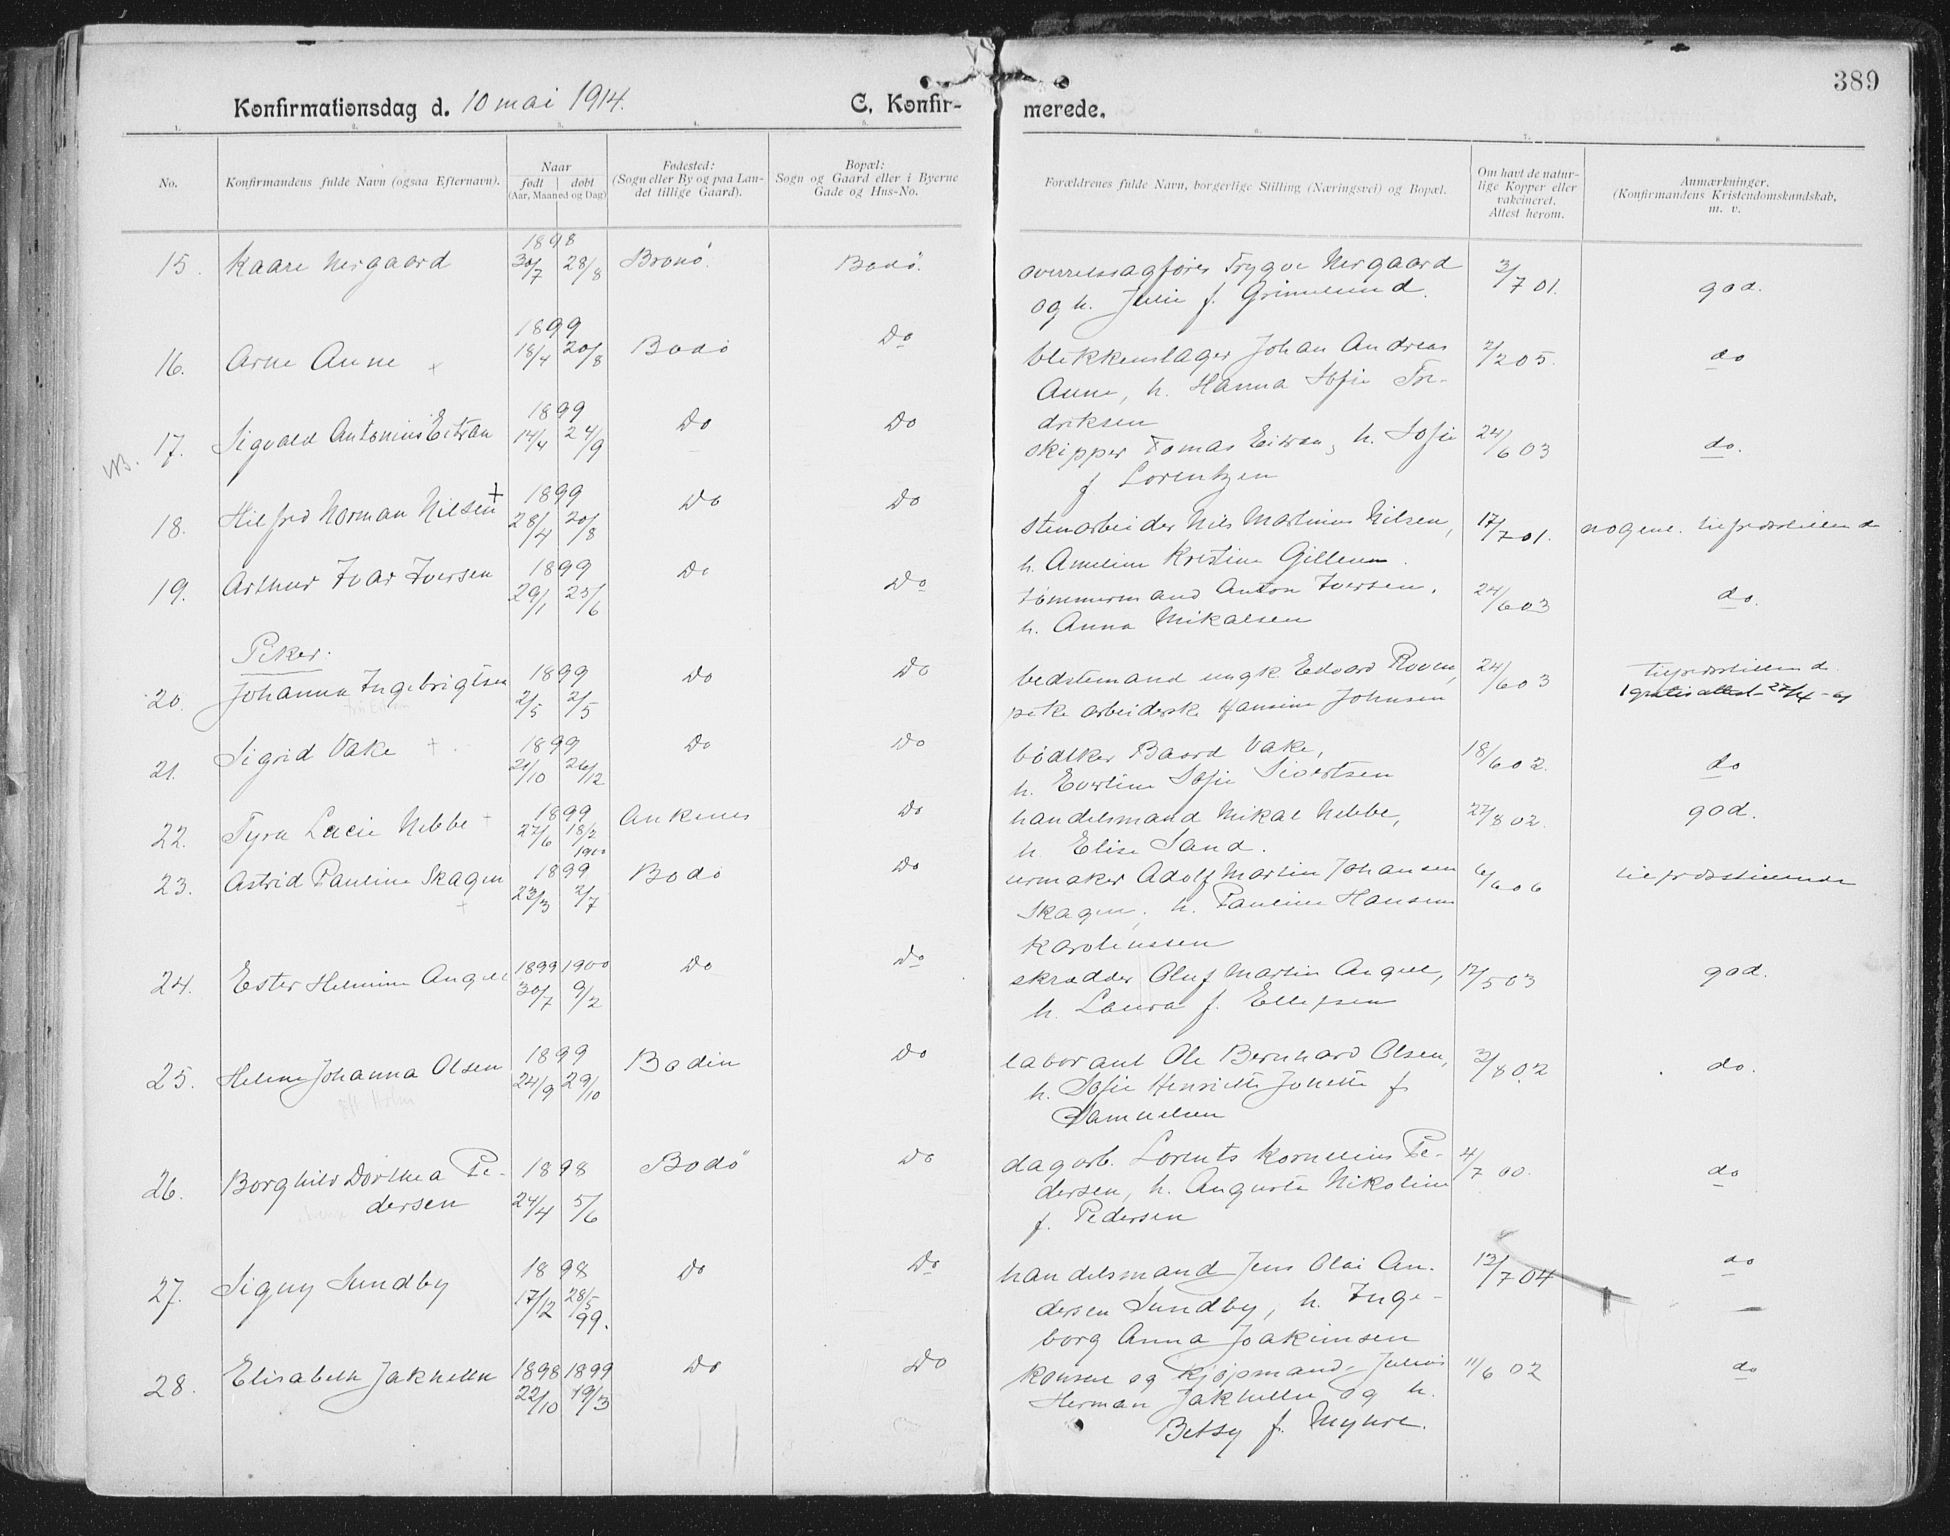 389
Konfirmationsdag d. 10 mai 1914. C. Konfir-
merede.
1. 2. 3. 4. 5. 6. 7. 8.
No.
Konfirmandens fulde Navn (ogsaa Efternavn).
Naar
født døbt
(Aar, Maaned og Dag)
Fødested:
(Sogn eller By og paa Lan-
det tillige Gaard).
Bopæl:
Sogn og Gaard eller i Byerne
Gade og Hus-No.
Forældrenes fulde Navn, borgerlige Stilling (Næringsvei) og Bopæl.
Om havt de natur-
lige Kopper eller
vakcineret.
Attest herom.
Anmærkninger.
(Konfirmandens Kristendomskundskab,
m. v.
1898
15. Kaare Nergaard 30/7 28/8 Brønø. Bodø. overretssagfører Trygve Nergaard 3/7 01. god.
og h. Julie f. Grimelund.
1899
16. Arne Aune 18/4 20/8 Bodø Do blikkenslager Johan Andreas 2/2 05. do
Aune, h. Hanna Sofie Fre-
driksen
1899
NB. 17. Sigvald Antonius Eitran 14/4 24/9 Do Do skipper Tomas Eitran, h. Sofie 24/6 03 do.
f. Lorentzen
1899
18. Hilfred Norman Nilsen + 28/4 20/8 Do Do stenarbeider Nils Martinus Nilsen, 17/7 01. nogenl. tilfredsstillend
h. Ameline Kristine Gillesen.
1899
19. Arthur Ivar Iversen 29/1 25/6 Do Do tømmermand Anton Iversen, 24/6 03 do.
h. Anna Mikalsen
Piker:
1899
20. Johanna Ingebrigtsen 2/5 2/5 Do Do bestemand ungk Edvard 24/6 03 tilfredsstillend.
pike arbeiderske Hansine Johnsen 1 gratis attest
1899
21. Sigrid Vake + 21/10 26/12 Do Do bødker Baard Vake, 18/6 02. do
h. Evertine Sofie Sivertsen
1899
22. Tyra Lucie Nebbe + 27/6 18/2 1900 Ankenes Do handelsmand Mikal Nebbe, 27/8 02. god.
h. Elise Sand.
1899
23. Astrid Pauline Skagen + 23/3 2/7 Bodø Do urmaker Adolf Martin Johansen 6/6 06 tilfredsstillende
Skagen, h. Pauline Hansine
Karoliussen
1899 1900
24. Ester Helmine Angell 30/7 9/2 Do Do skrædder Oluf Martin Angell, 12/5 03 god.
h. Laura f. Ellefsen
1899
25. Helene Johanna Olsen 24/9 29/10 Bodin Do laborant Ole Bernhard Olsen, 3/8 02 do.
gift Holm h. Sofie Henriette Jonette f.
Samuelsen
26. Borghild Dorthea Pe- 1898 Bodø Do dagarb. Lorents Kornelius Pe- 4/7 00. do
dersen 24/4 5/6 dersen, h. Augusta Nikoline
f. Pedersen
1898
27. Signy Sundby 17/12 28/5 99. Do Do handelsmand Jens Olai An- 13/7 04 do
dersen Sundby, h. Inge-
borg Anna Joakimsen
28. Elisabeth Jakhelln 1898 1899 Do Do konsul og kjøpmand Julius 11/6 02 do
22/10 19/3 Herman Jakhelln og h.
Betsy f. Myhre.